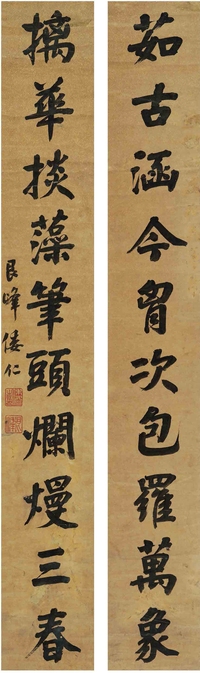 茹古涵今胷次包羅萬象
摛華掞藻筆頭爛熳三春
艮峰倭仁